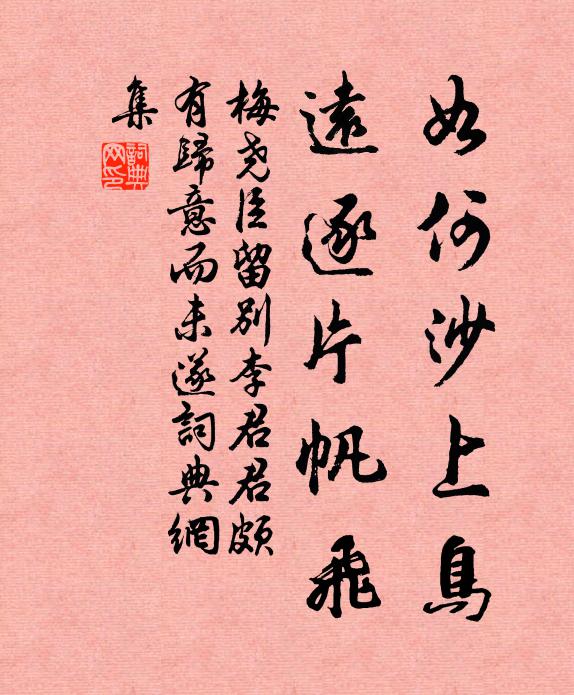 如何沙上鳥
遠逐片帆飛
梅尧臣留别李君君頗
有歸意而未遂詞典網
集
詞典
网印